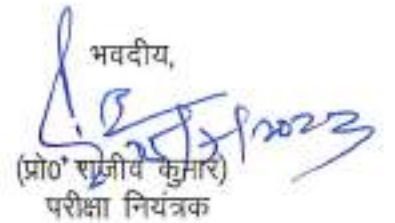 भवदीय,
25/7/2023
(प्रो० राजीव कुमार)
परीक्षा नियंत्रक